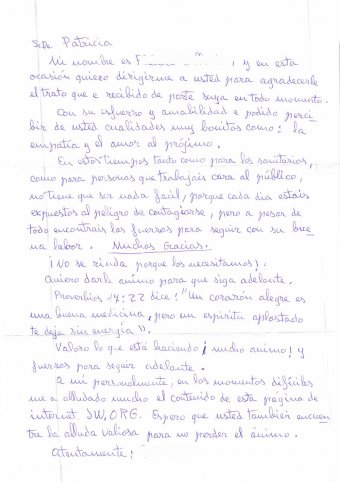 Srta. Patricia
Mi nombre es F , y en esta
ocasión quiero dirigirme a usted para agradecerle
el trato que e recibido de parte suya en todo momento.
Con su esfuerzo y amabilidad e podido perci
bir de usted cualidades muy bonitas como: la
empatía y el amor al prójimo.
En estos tiempos tanto como para los sanitarios,
como para personas que trabajais cara al público,
no tiene que ser nada facil, porque cada dia estais
expuestos al peligro de contagiarse, pero a pesar de
todo encontrais las fuerzas para seguir con su bue
na labor. Muchas Gracias.
¡No se rinda porque los necesitamos!
Quiero darle animo para que siga adelante.
Proverbios 17:22 dice: "Un corazón alegre es
una buena medicina, pero un espiritu aplastado
te deja sin energía".
Valoro lo que está haciendo ¡mucho animo! y
fuerzas para seguir adelante.
A mi personalmente, en los momentos dificiles
me a alludado mucho el contenido de esta pagina de
internet. JW.ORG. Espero que usted también encuen
tre la alluda valiosa para no perder el ánimo.
Atentamente: